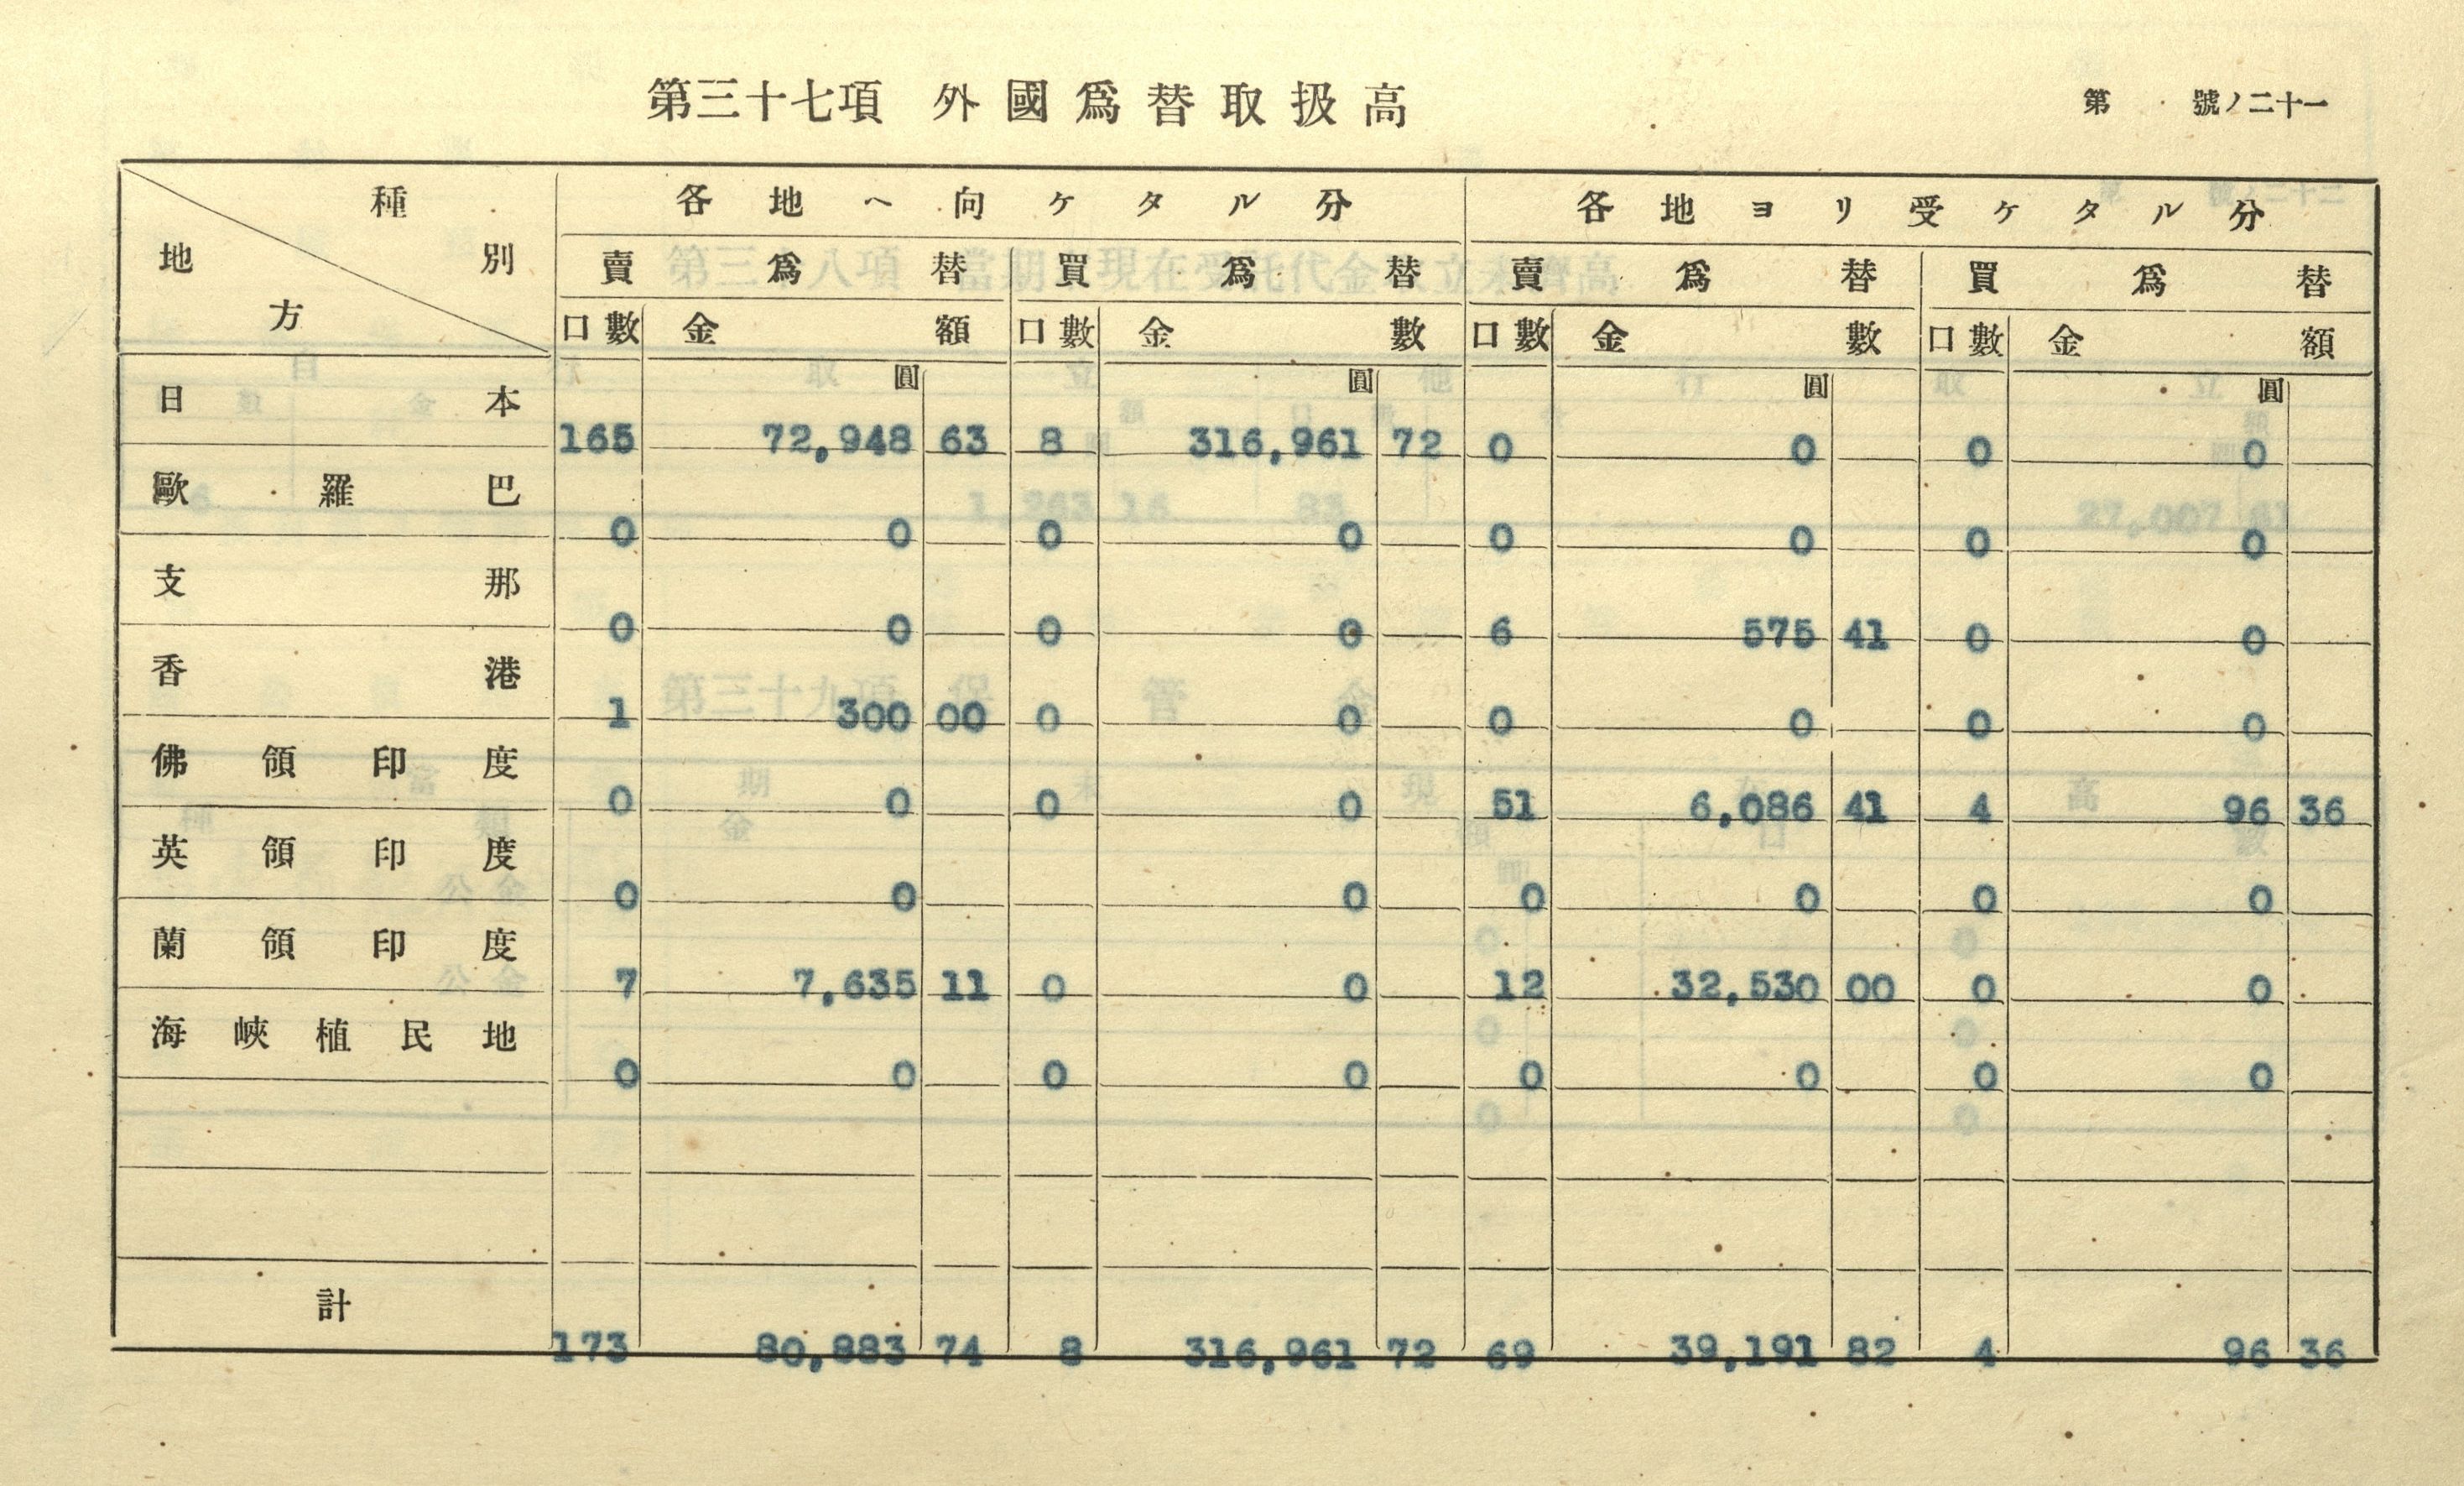 第三十七項 外國爲替取扱高
第 號ノ二十一
種別 地方
各地ヘ向ケタル分 各地ヨリ受ケタル分
賣爲替 買爲替 賣爲替 買爲替
口數 金額 口數 金數 口數 金數 口數 金額
圓 圓 圓 圓
日本 165 72,948 63 8 316,961 72 0 0 0 0
歐羅巴 0 0 0 0 0 0 0 0
支那 0 0 0 0 6 575 41 0 0
香港 1 300 00 0 0 0 0 0 0
佛領印度 0 0 0 0 51 6,086 41 4 96 36
英領印度 0 0 0 0 0 0 0
蘭領印度 7 7,635 11 0 0 12 32,530 00 0 0
海峽植民地 0 0 0 0 0 0 0 0
計 173 80,883 74 8 316,961 72 69 39,191 82 4 96 36